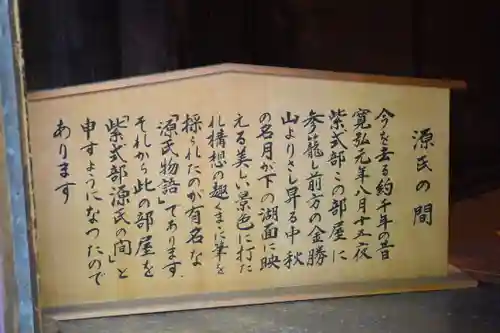 源氏の間
今を去る約千年の昔
寛弘元年八月十五夜
紫式部この部屋に
参籠し前方の金勝
山よりさし昇る中秋
の名月か下の湖面に映
える美しい景色に打た
れ構想の趣くまゝに筆を
採られたのが有名な
「源氏物語」であります.
それから此の部屋を
「紫式部源氏の間」と
申すようになったので
あります